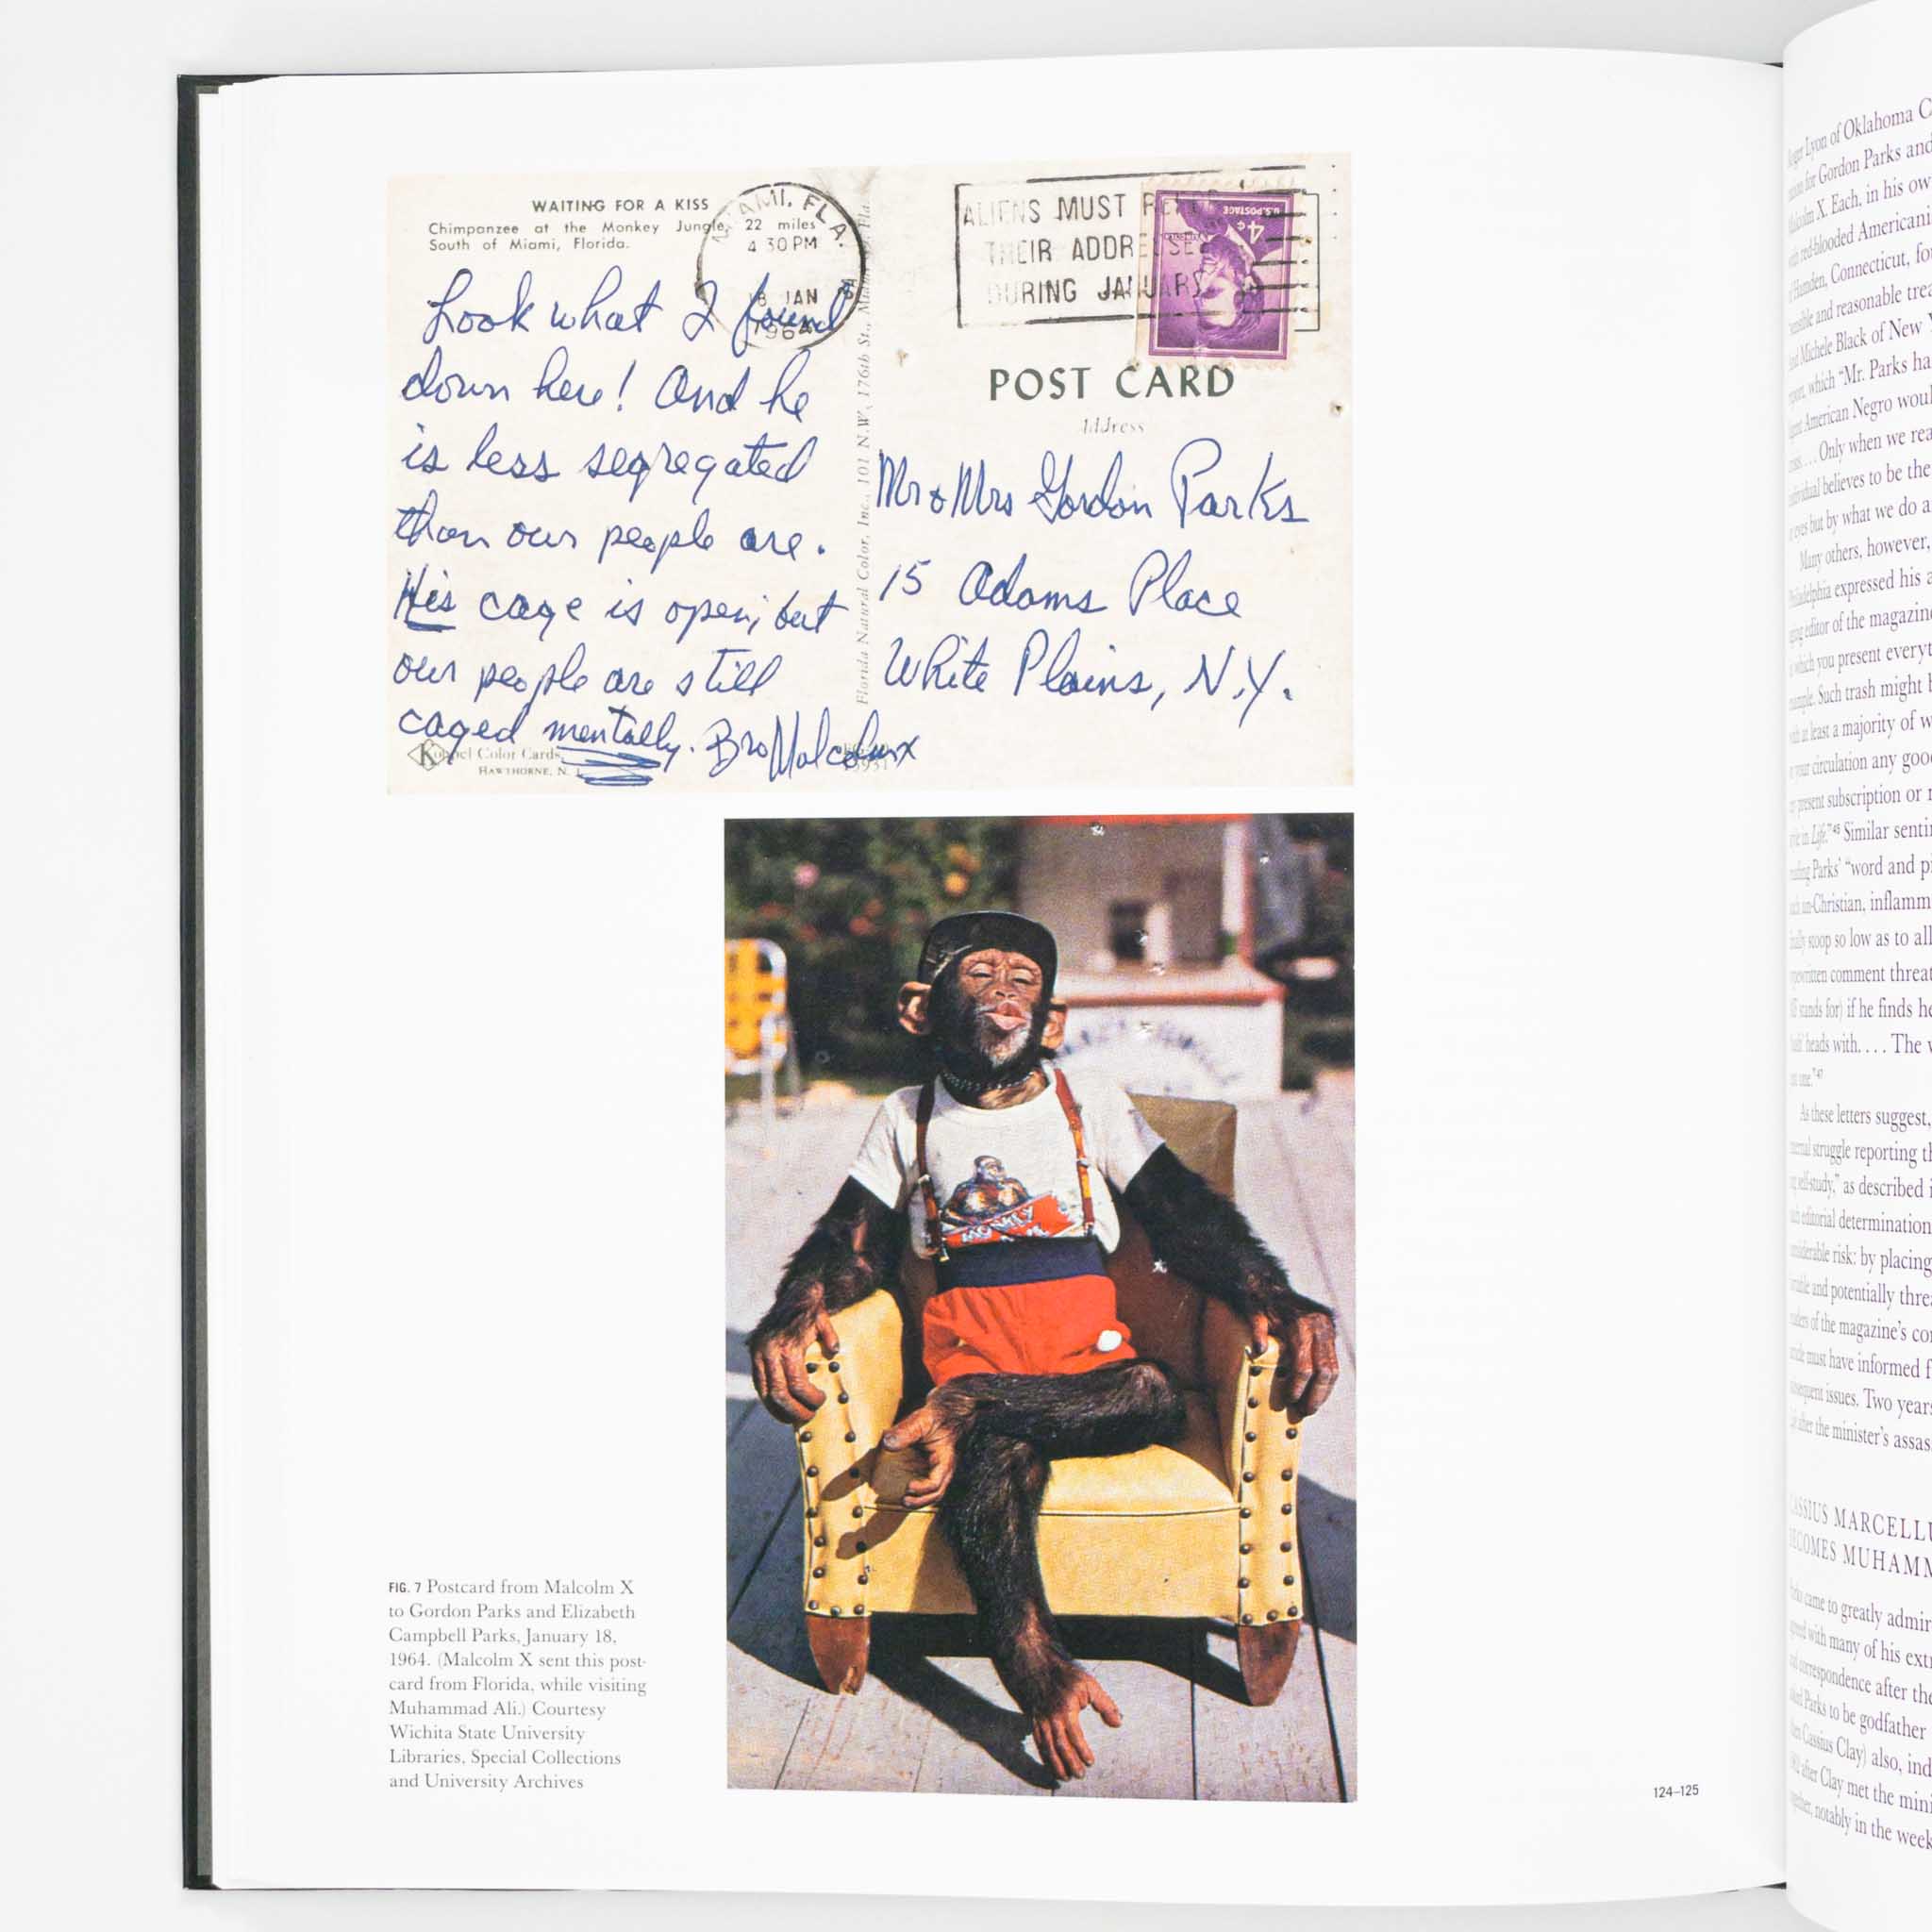 WAITING FOR A KISS
Chimpanzee at the Monkey Jungle, 22 miles
South of Miami, Florida.
MIAMI, FLA.
4 30 PM
18 JAN
1964
Look what I found
down here! And he
is less segregated
than our people are.
His cage is open, but
our people are still
caged mentally. Bro Malcolm X
Koppel Color Cards
HAWTHORNE, N. J.
Florida Natural Color, Inc., 101 N.W. 176th St., Miami, Fla.
ALIENS MUST
THEIR ADDRESSES
DURING JANUARY
U.S.POSTAGE
4¢
POST CARD
Address
Mr & Mrs Gordon Parks
15 Adams Place
White Plains, N.Y.
FIG. 7 Postcard from Malcolm X
to Gordon Parks and Elizabeth
Campbell Parks, January 18,
1964. (Malcolm X sent this post-
card from Florida, while visiting
Muhammad Ali.) Courtesy
Wichita State University
Libraries, Special Collections
and University Archives
124–125
Lyon of Oklahoma
for Gordon Parks and
Malcolm X. Each, in his
red-blooded
Hamden, Connecticut,
and reasonable
Michele Black of New
which “Mr. Parks
American Negro
. . . Only when we
believes to be the
eyes but by what we do
Many others, however,
Philadelphia expressed his
editor of the magazine
which you present
Such trash might
at least a majority of
your circulation any
present subscription or
in Life.”45 Similar
Parks’ “word and
un-Christian,
stoop so low as to
typewritten comment
stands for) if he finds
heads with. . . . The
one.”47
As these letters suggest,
struggle reporting
self-study,” as described
editorial determination
considerable risk: by placing
and potentially
readers of the magazine’s
article must have informed
subsequent issues. Two
after the minister’s
CASSIUS
BECOMES
Parks came to greatly
agreed with many of his
correspondence after
Parks to be godfather
Cassius Clay) also,
after Clay met the
together, notably in the